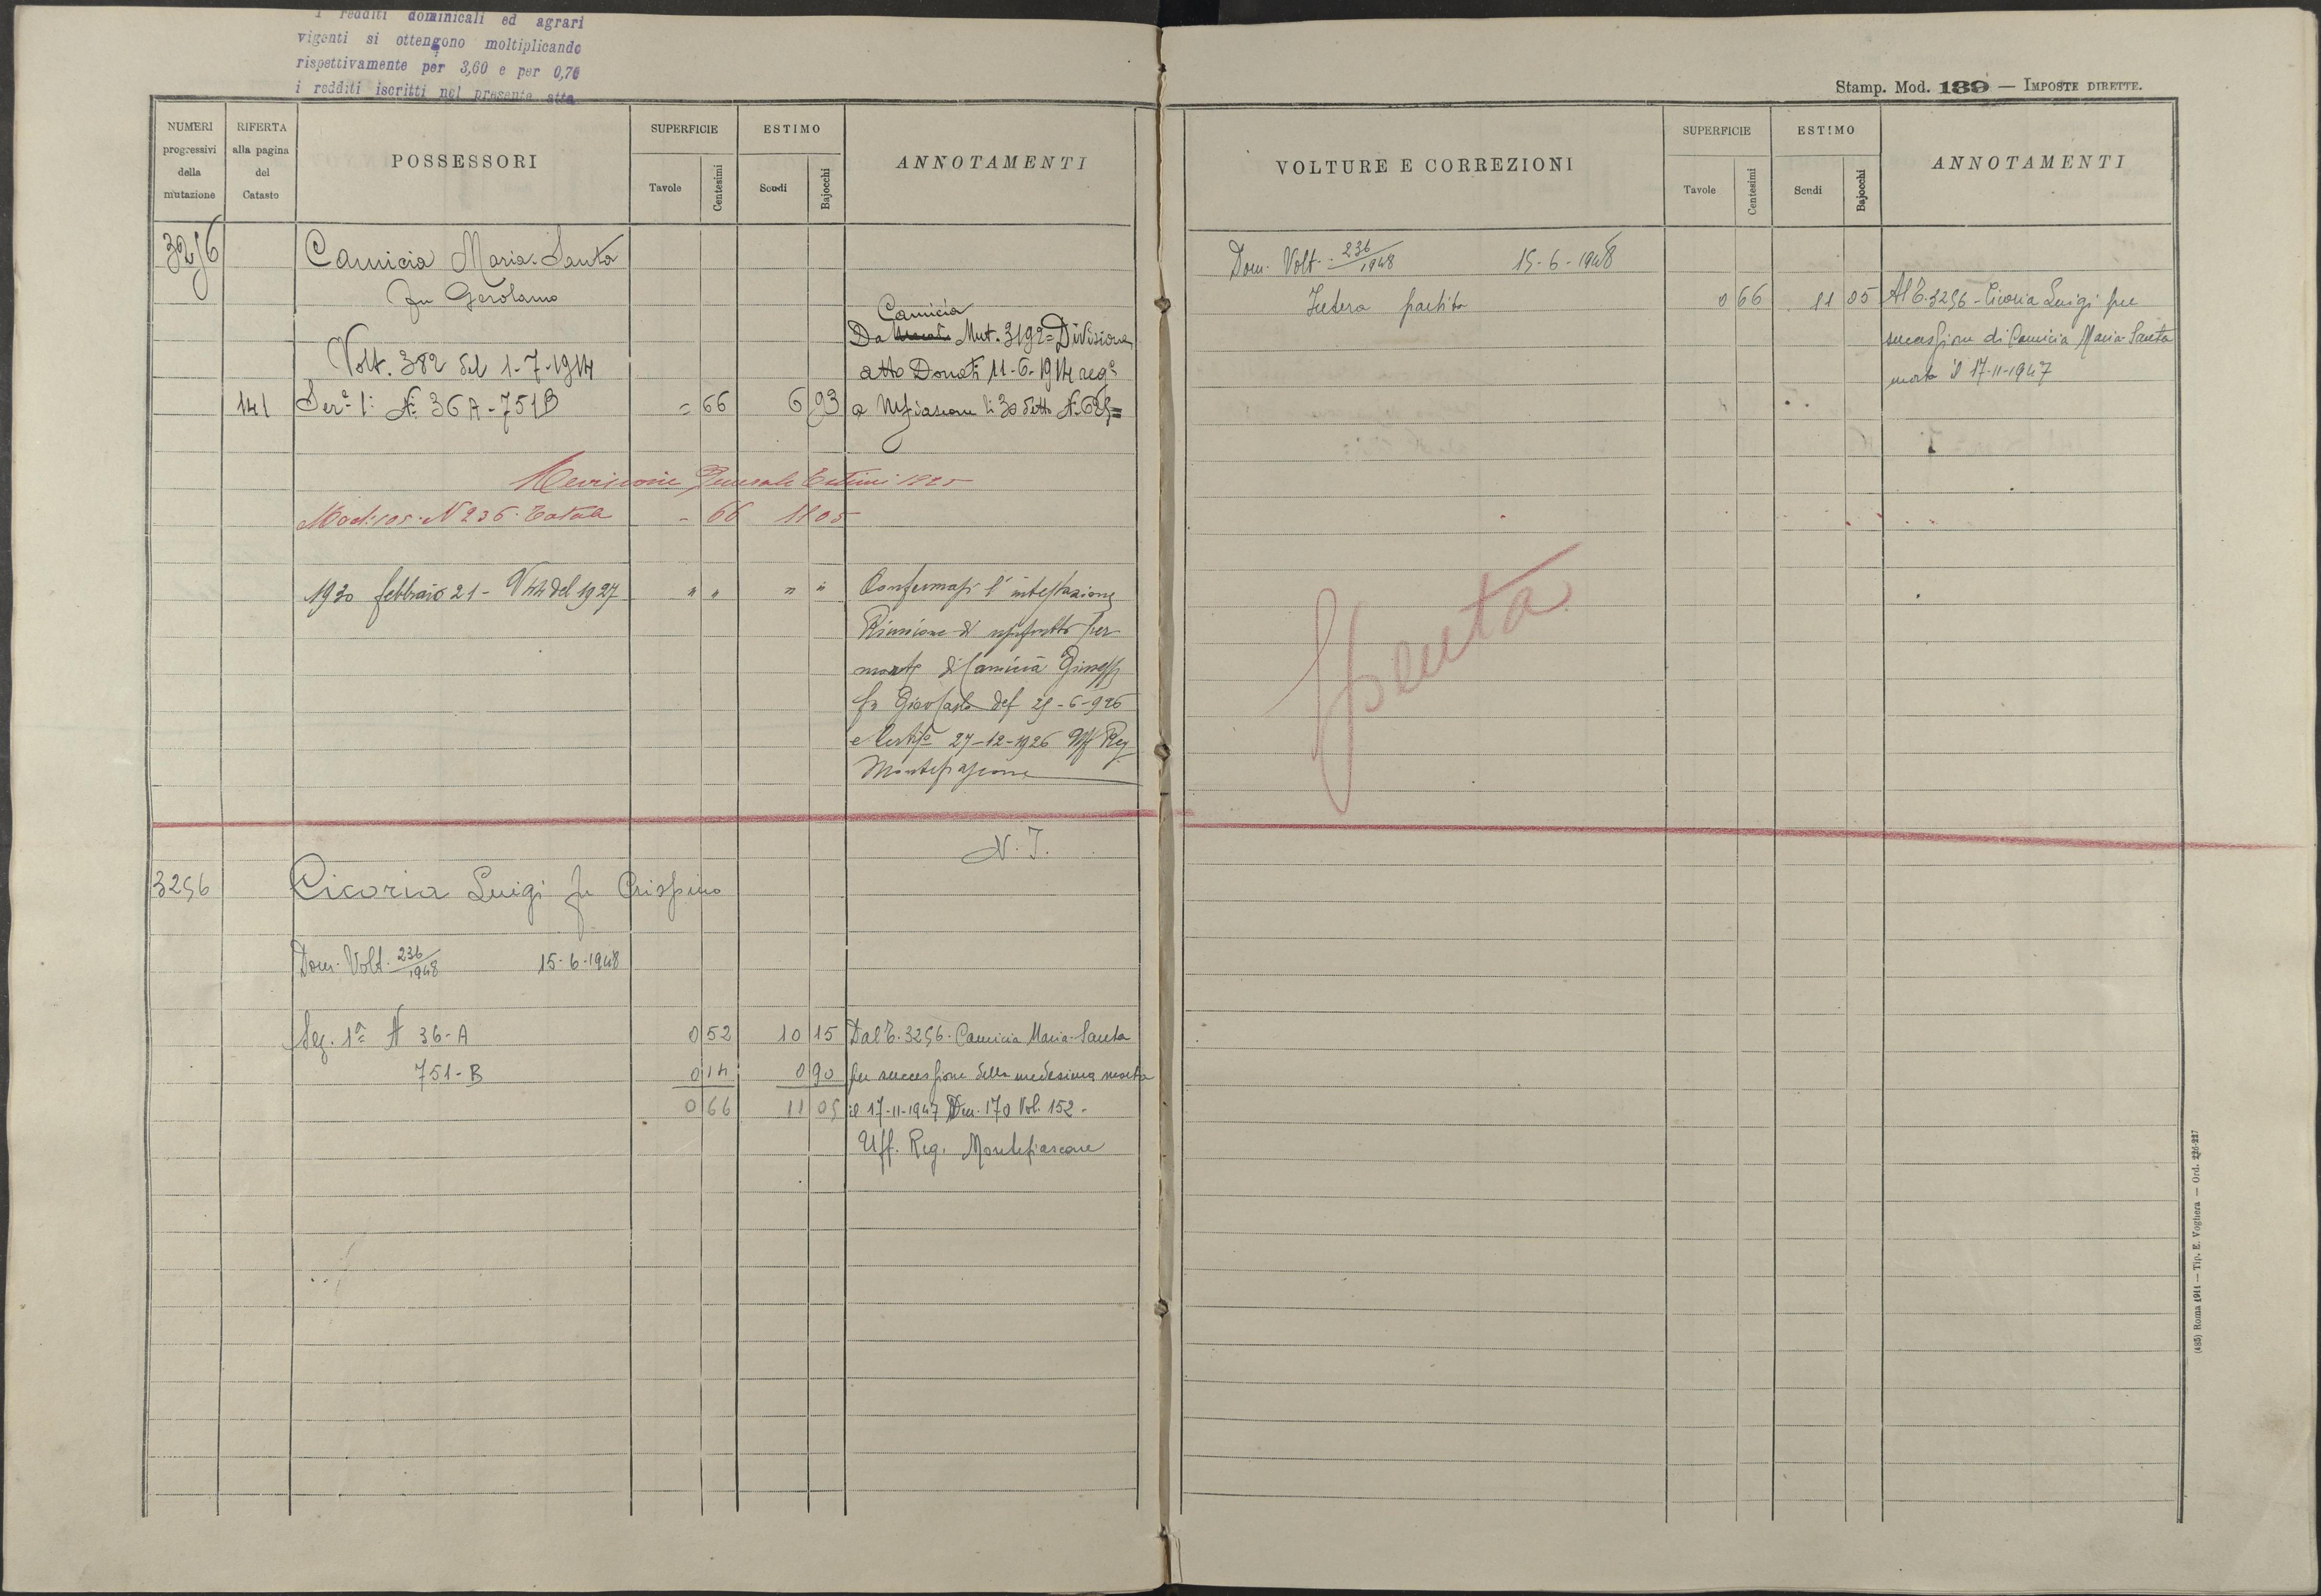 I redditi dominicali ed agrari
vigenti si ottengono moltiplicando
rispettivamente per 3,60 e per 0,70
i redditi iscritti nel presente atto
Stamp. Mod. 139 — IMPOSTE DIRETTE.
NUMERI progressivi della mutazione
RIFERTA alla pagina del Catasto
POSSESSORI
SUPERFICIE
Tavole
Centesimi
ESTIMO
Scudi
Bajocchi
ANNOTAMENTI
3256
Camicia Maria-Santa
fu Gerolamo
Camicia
Da Mut. 3192 = Divisione
Volt. 382 del 1-7-1914
atto Donati 11-6-1914 reg°
141 Sez.e 1ª N. 36A-751B = 66 6 93 a Mfiascone li 30 detto N.
Revisione Generale Estimi 1925
Mod. 105. N 236. Totale - 66 11 05
1930 febbraio 21 - V 44 del 1927 " " " " Confermasi l'intestazione
Riunione di usufrutto per
morte di Camicia
fu def 29-6-926
e Certif° 27-12-1926 Uff Reg
Montefiascone
N. I.
3256 Cicoria Luigi fu Crispino
Dom. Volt. 236/1948 15-6-1948
Sez. 1ª N 36-A 0 52 10 15 Dal P. 3256. Camicia Maria-Santa
751-B 0 14 0 90 per successione della medesima morta
0 66 11 05 il 17-11-1947 Den. 170 Vol. 152.
Uff. Reg. Montefiascone
VOLTURE E CORREZIONI
SUPERFICIE
Tavole
Centesimi
ESTIMO
Scudi
Bajocchi
ANNOTAMENTI
Dom. Volt. 236/1948 15-6-1948
Intera partita 0 66 11 05 Al P. 3256 - Cicoria Luigi per
successione di Camicia Maria Santa
morta il 17-11-1947
Spenta
(485) Roma 1911 — Tip. E. Voghera — Ord. 226-227